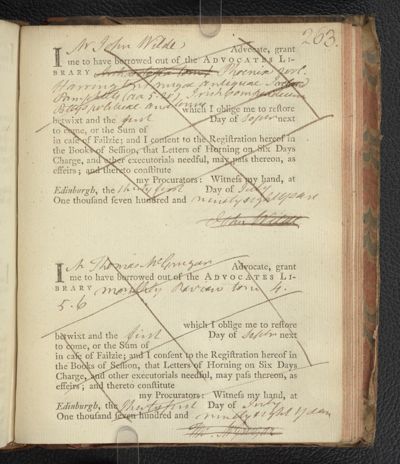 263.
I Mr John Wilde Advocate, grant
me to have borrowed out of the ADVOCATES LI-
BRARY Phoenix
Harring
Pamphlets Irish
political and which I oblige me to reſtore
betwixt and the first Day of Septr next
to come, or the Sum of
in caſe of Failzie; and I conſent to the Regiſtration hereof in
the Books of Seſſion, that Letters of Horning on Six Days
Charge, and other executorials needful, may paſs thereon, as
effeirs; and thereto conſtitute
my Procurators: Witneſs my hand, at
Edinburgh, the thirty first Day of July
One thouſand ſeven hundred and ninety eight years
John Wilde
I Mr Thomas McGrugar Advocate, grant
me to have borrowed out of the ADVOCATES LI-
BRARY monthly Review tom 4.
5. 6
which I oblige me to reſtore
betwixt and the first Day of Septr next
to come, or the Sum of
in caſe of Failzie; and I conſent to the Regiſtration hereof in
the Books of Seſſion, that Letters of Horning on Six Days
Charge, and other executorials needful, may paſs thereon, as
effeirs; and thereto conſtitute
my Procurators: Witneſs my hand, at
Edinburgh, the thirty first Day of July
One thouſand ſeven hundred and ninety eight years